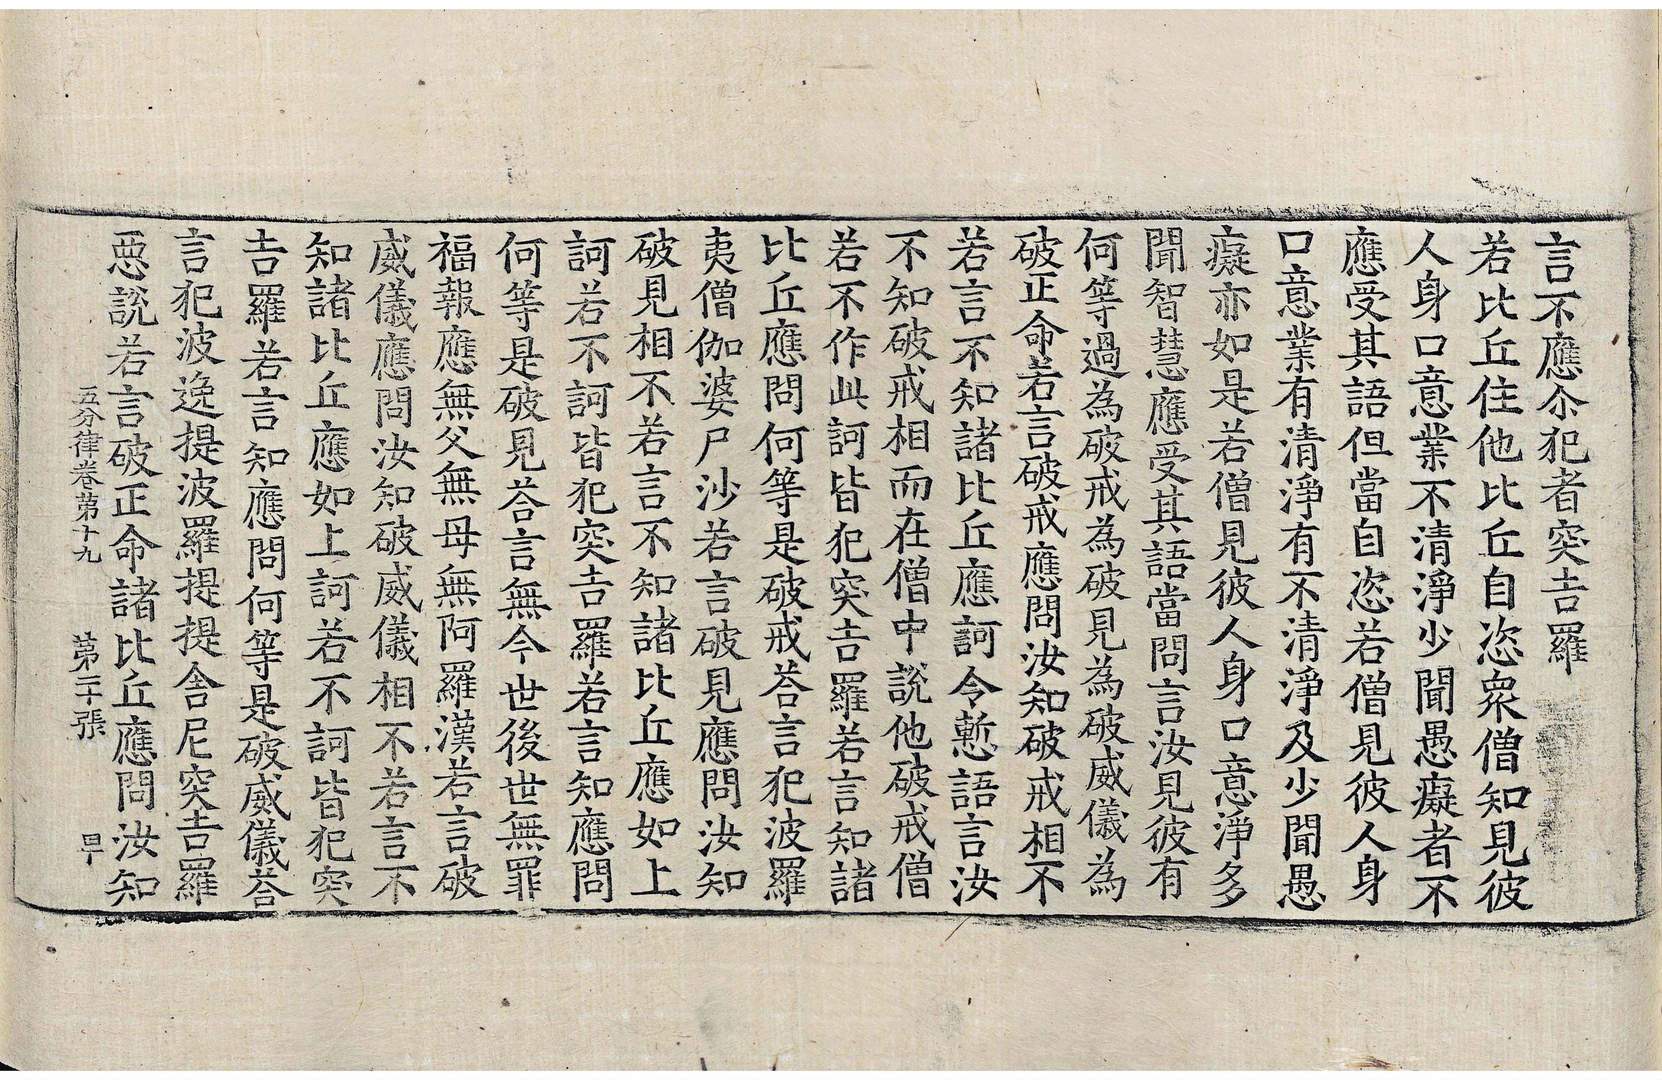 言不應尒犯者突吉羅
若比丘住他比丘自恣衆僧知見彼
人身口意業不清淨少聞愚癡者不
應受其語但當自恣若僧見彼人身
口意業有清淨有不清淨及少聞愚
癡亦如是若僧見彼人身口意淨多
聞智慧應受其語當問言汝見彼有
何等過為破戒為破見為破威儀為
破正命若言破戒應問汝知破戒相不
若言不知諸比丘應訶令慙語言汝
不知破戒相而在僧中說他破戒僧
若不作此訶皆犯突吉羅若言知諸
比丘應問何等是破戒荅言犯波羅
夷僧伽婆尸沙若言破見應問汝知
破見相不若言不知諸比丘應如上
訶若不訶皆犯突吉羅若言知應問
何等是破見荅言無今世後世無罪
福報應無父無母無阿羅漢若言破
威儀應問汝知破威儀相不若言不
知諸比丘應如上訶若不訶皆犯突
吉羅若言知應問何等是破威儀荅
言犯波逸提波羅提提舍尼突吉羅
惡說若言破正命諸比丘應問汝知
五分律卷第十九 第二十張 旱